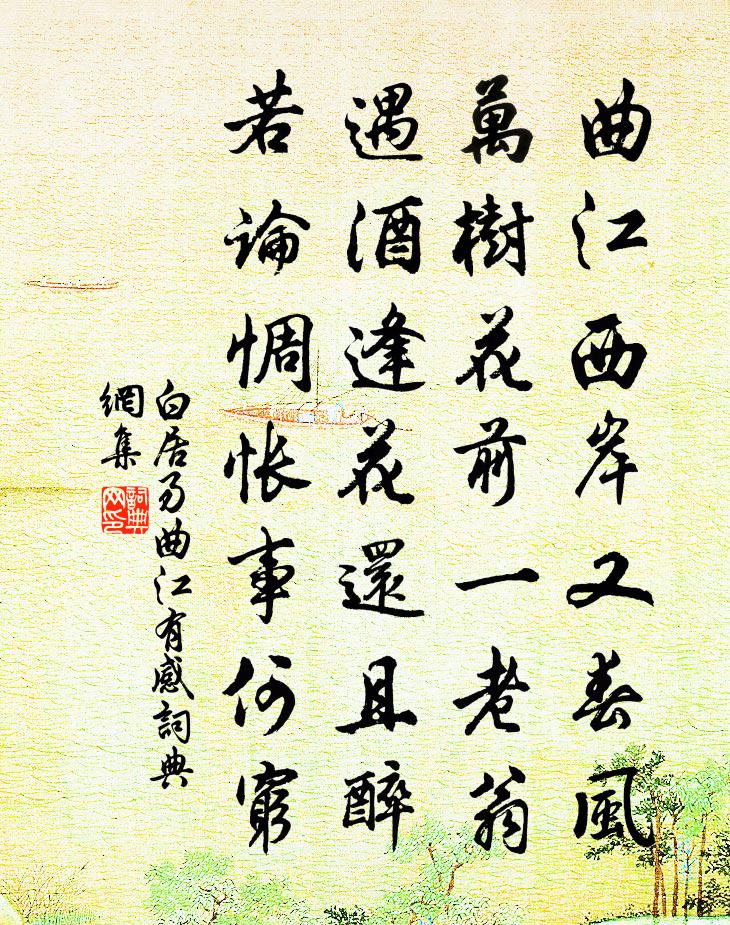 曲江西岸又春風
萬樹花前一老翁
遇酒逢花還且醉
若論惆悵事何窮
白居易曲江有感詞典
網集
詞典
网印